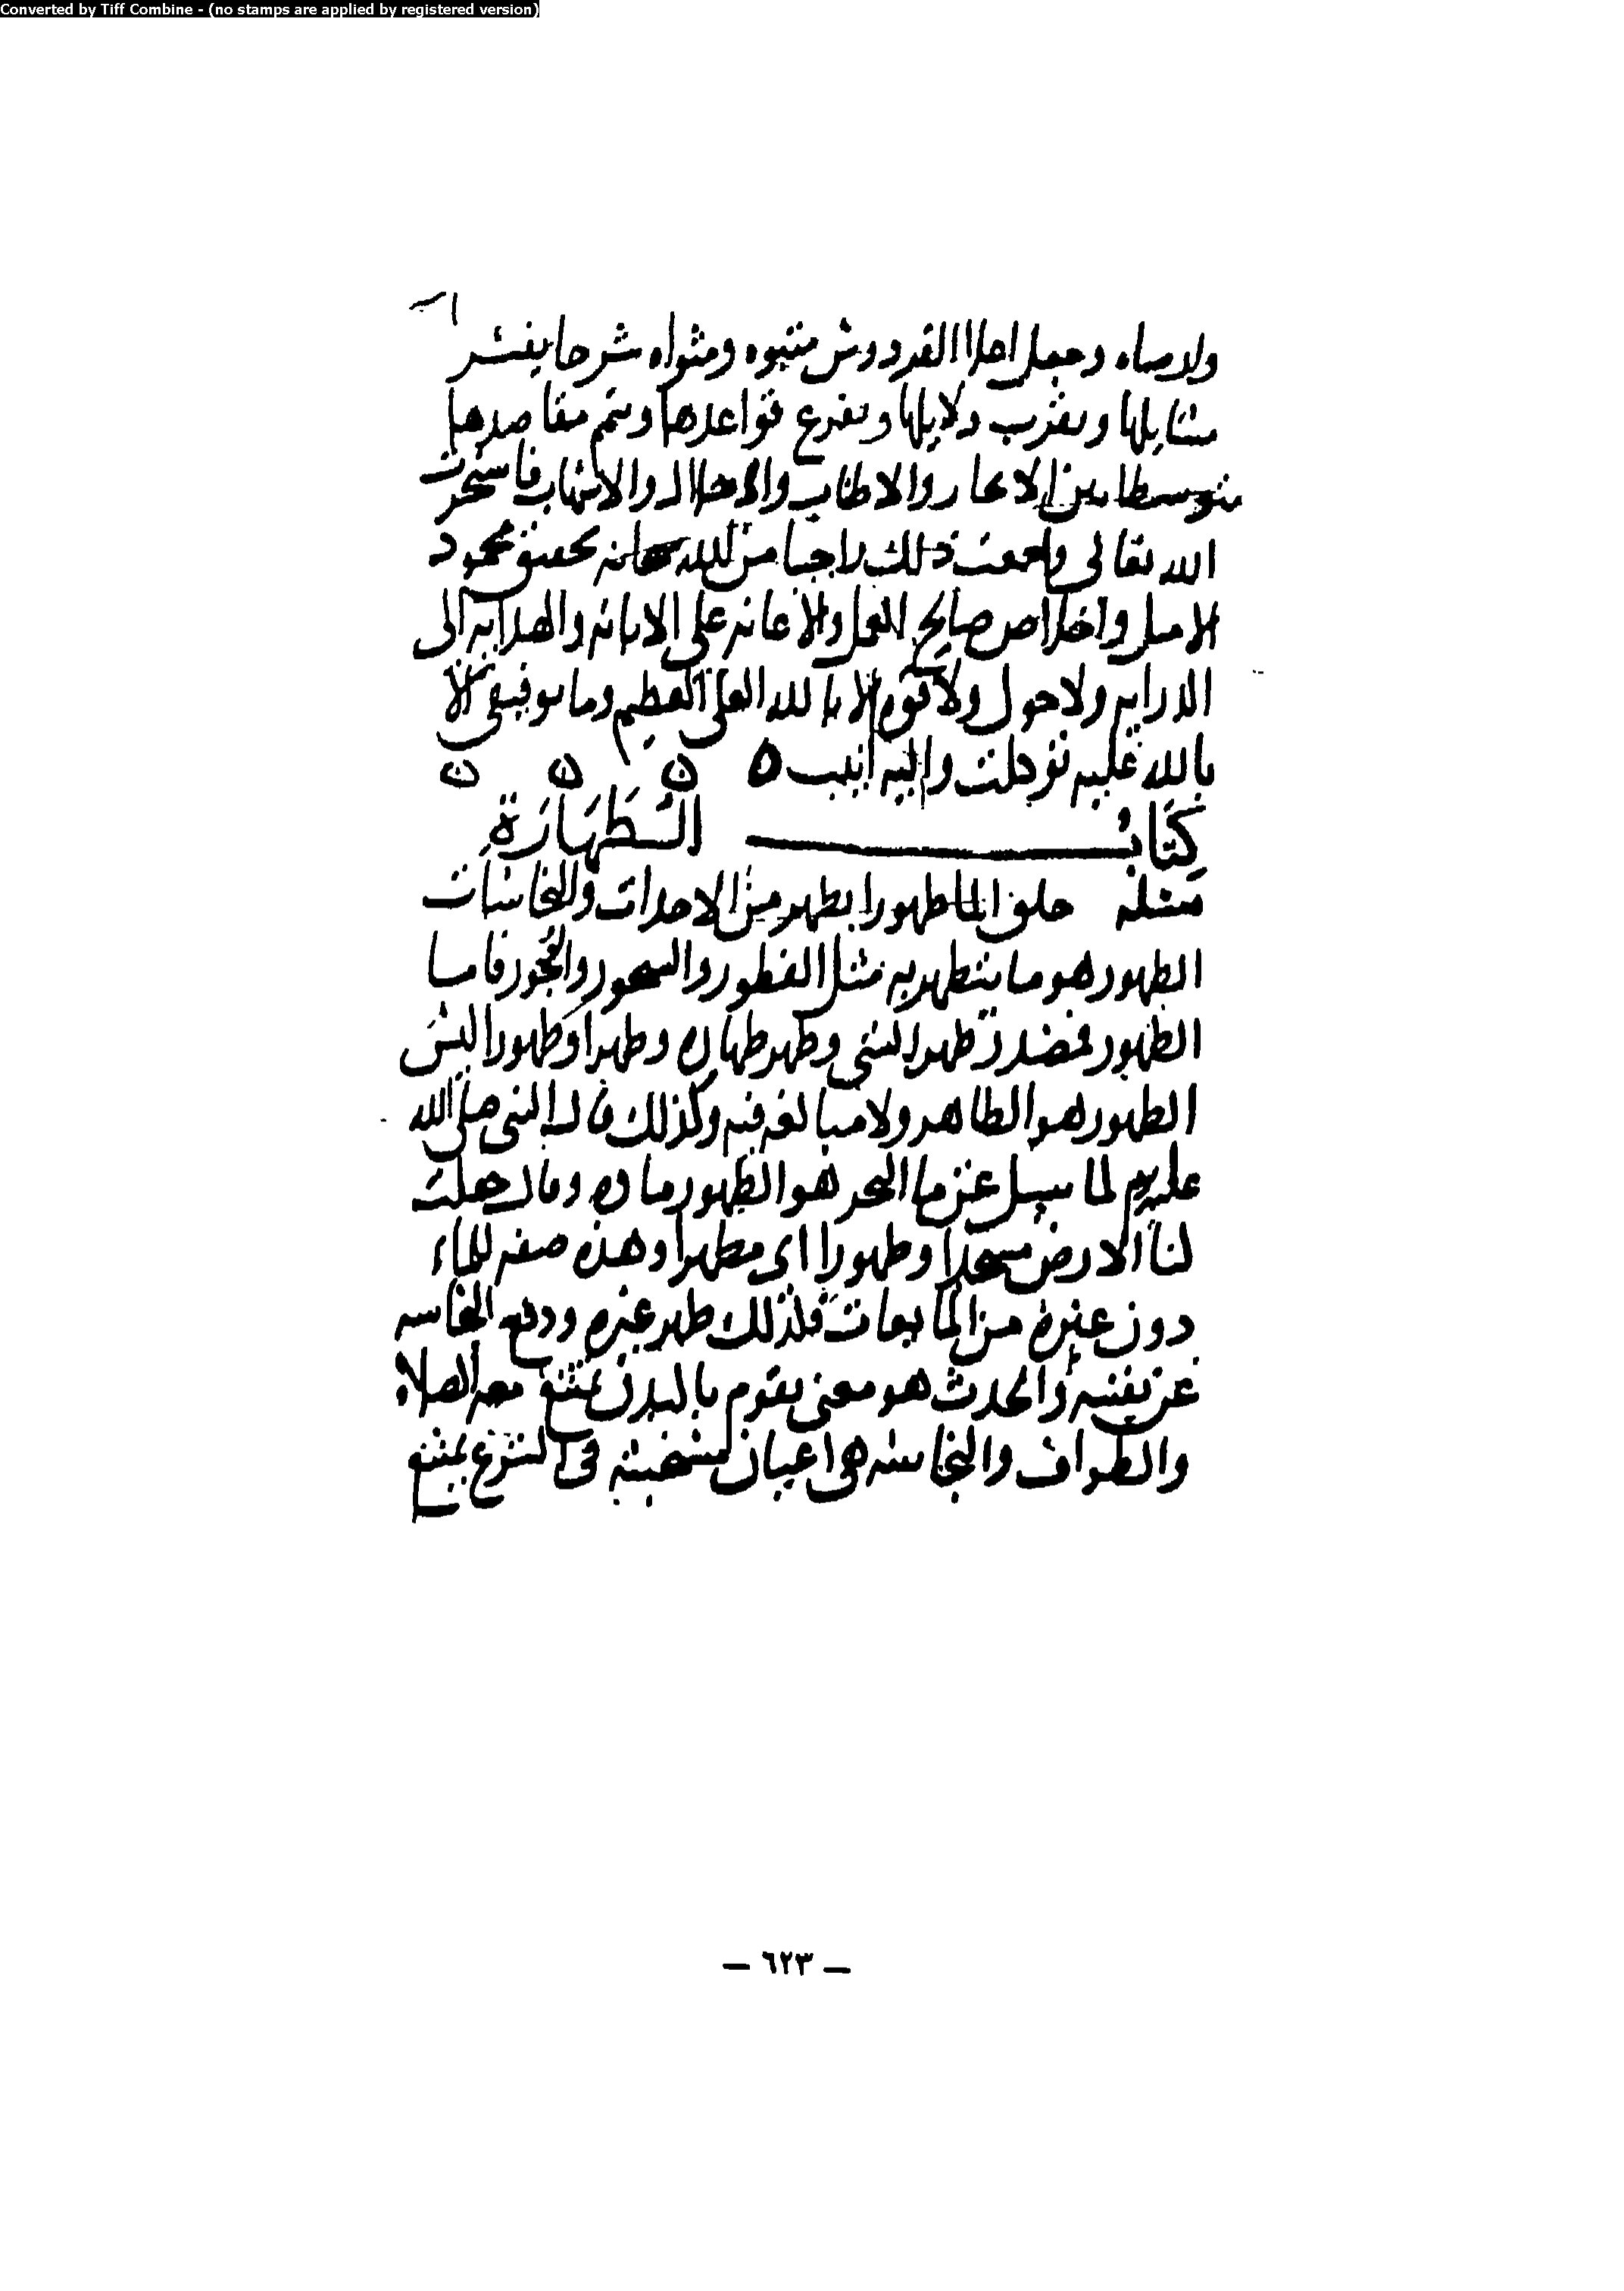 Converted by Tiff Combine - (no stamps are applied by registered version)
وجعل اعلا الفردوس متبوه ومثواه شرحا يفسر
مسايلها ويقرب دلايلها ويفرع قواعدها ويتم مقاصدها
متوسطا بين الايجاز والاطناب والاخلال والاسهاب فاستخرت
الله تعالى ذلك راجيا من الله سبحانه تحقيق محمود
الامل واخلاص صالح العمل والاعانه على الابانه والهدايه الى
الدرايه ولا حول ولا قوه الا بالله العلى العظيم وما توفيقى الا
بالله عليه توكلت واليه انيب ه ن ن ن
كِتَابُ الطَّهَارَةِ
مسئله خلق الماء طهورا يطهر من الاحداث والنجاسات
الطهور هو ما يتطهر به مثل الفطور والسحور فاما
الطهور فمصدر طهر الشى وطهر طهاره وطهرا وطهورا ليس
الطهور هو الطاهر ولا مبالغه فيه وكذلك قال النبى صلى الله
عليه لما سيل عن ما البحر هو الطهور ماوه وقال جعلت
لنا الارض مسجدا وطهورا اى مطهرا وهذه صفه للماء
دون غيره من المايعات فلذلك طهر غيره ودفع النجاسه
عن نفسه والحدث هو معنى يقوم بالبدن تمتنع معه الصلاه
والطواف والنجاسه هى اعيان مستخبثه فى الشرع يمتنع
— ٦٢٣ —